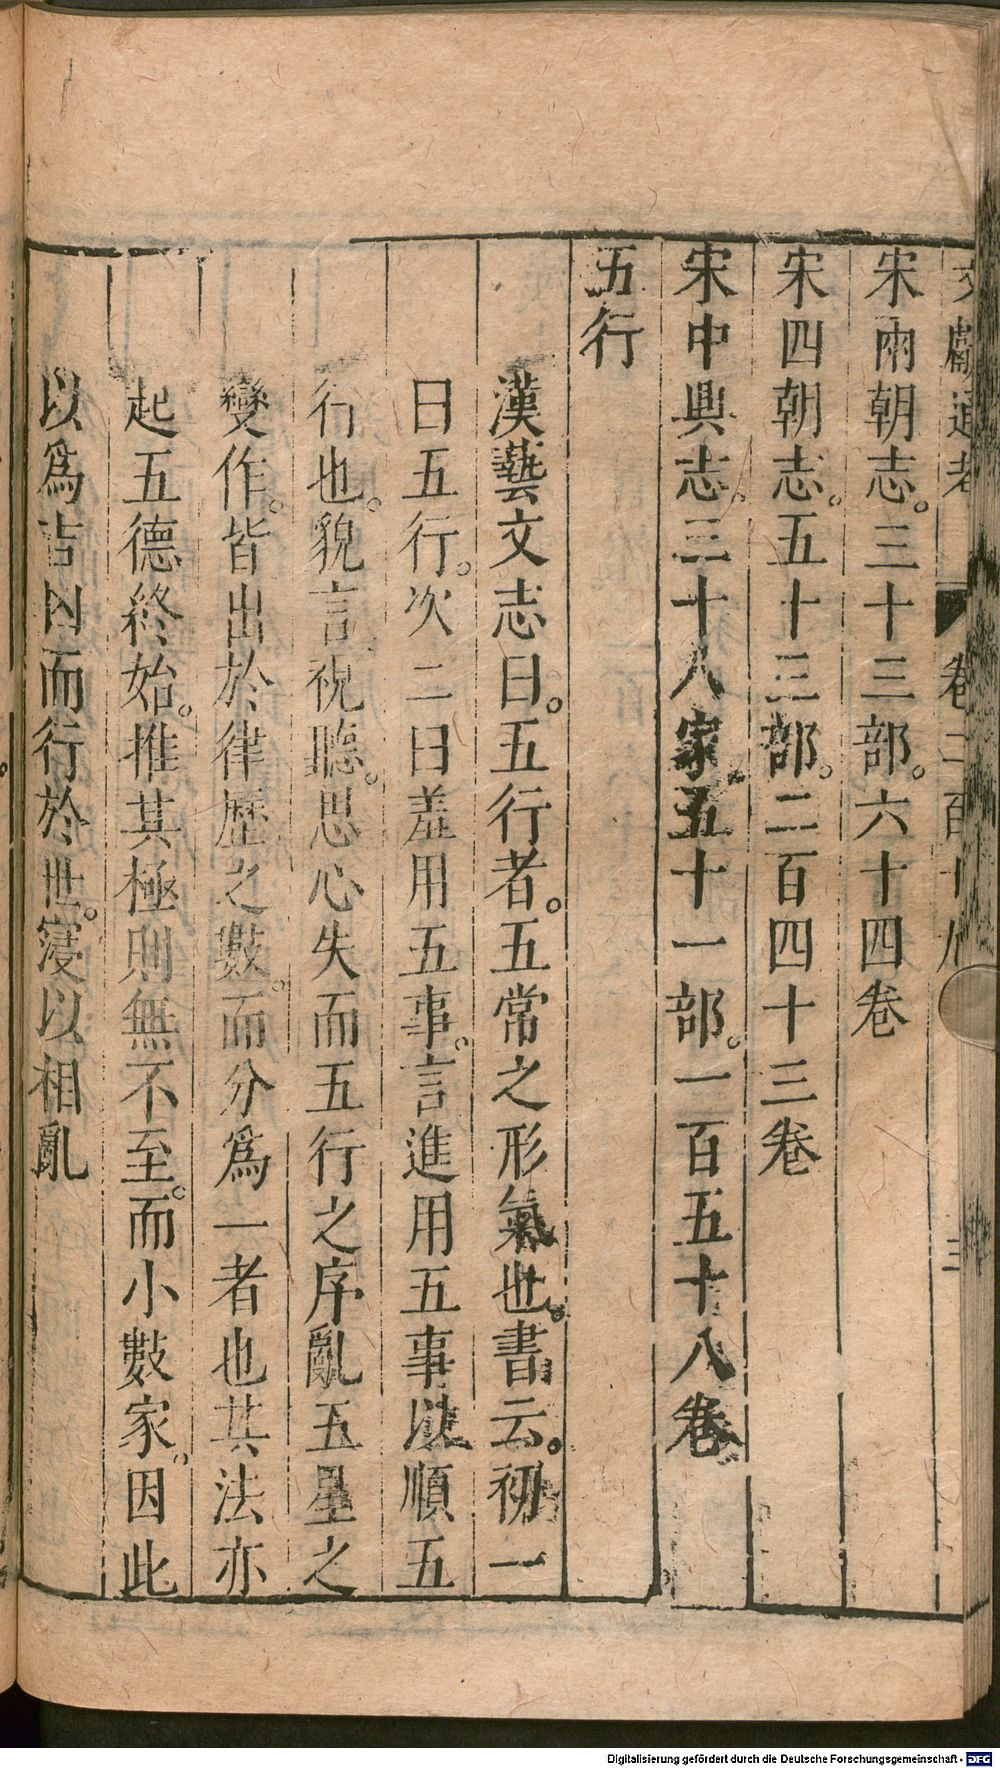 文獻通考 卷二百十九 三
宋兩朝志。三十三部。六十四卷
宋四朝志。五十三部。二百四十三卷
宋中興志。三十八家五十一部。一百五十八卷
五行
漢藝文志曰。五行者。五常之形氣也。書云。初一
曰五行。次二曰羞用五事。言進用五事以順五
行也。貌言視聽。思心失而五行之序亂五星之
變作。皆出於律歷之數。而分爲一者也其法亦
起五德終始。推其極則無不至。而小數家。因此
以爲吉凶而行於世。寖以相亂
Digitalisierung gefördert durch die Deutsche Forschungsgemeinschaft - DFG